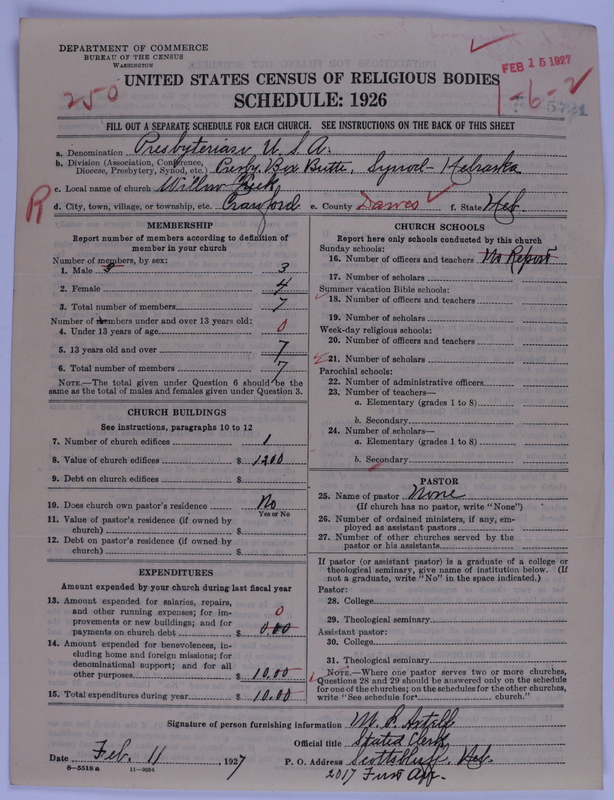 DEPARTMENT OF COMMERCE
BUREAU OF THE CENSUS
WASHINGTON
FEB 15 1927
UNITED STATES CENSUS OF RELIGIOUS BODIES
250
1-6-2
SCHEDULE: 1926
FILL OUT A SEPARATE SCHEDULE FOR EACH CHURCH. SEE INSTRUCTIONS ON THE BACK OF THIS SHEET
a. Denomination Presbyterian U. S. A.
b. Division (Association, Conference, Diocese, Presbytery, Synod, etc.) Presby. Box Butte, Synod - Nebraska
c. Local name of church Willow Creek
R
d. City, town, village, or township, etc. Crawford e. County Dawes f. State Neb.
MEMBERSHIP
Report number of members according to definition of member in your church
Number of members, by sex:
1. Male 3
2. Female 4
3. Total number of members 7
Number of members under and over 13 years old:
4. Under 13 years of age 0
5. 13 years old and over 7
6. Total number of members 7
NOTE.—The total given under Question 6 should be the same as the total of males and females given under Question 3.
CHURCH BUILDINGS
See instructions, paragraphs 10 to 12
7. Number of church edifices 1
8. Value of church edifices $ 1200
9. Debt on church edifices $
10. Does church own pastor's residence No
Yes or No
11. Value of pastor's residence (if owned by church) $
12. Debt on pastor's residence (if owned by church) $
EXPENDITURES
Amount expended by your church during last fiscal year
13. Amount expended for salaries, repairs, and other running expenses; for improvements or new buildings; and for payments on church debt $ 0
000
14. Amount expended for benevolences, including home and foreign missions; for denominational support; and for all other purposes $ 10.00
15. Total expenditures during year $ 10.00
CHURCH SCHOOLS
Report here only schools conducted by this church
Sunday schools:
16. Number of officers and teachers No Report
17. Number of scholars
Summer vacation Bible schools:
18. Number of officers and teachers
19. Number of scholars
Week-day religious schools:
20. Number of officers and teachers
21. Number of scholars
Parochial schools:
22. Number of administrative officers
23. Number of teachers—
a. Elementary (grades 1 to 8)
b. Secondary
24. Number of scholars—
a. Elementary (grades 1 to 8)
b. Secondary
PASTOR
25. Name of pastor None
(If church has no pastor, write "None")
26. Number of ordained ministers, if any, employed as assistant pastors
27. Number of other churches served by the pastor or his assistants
If pastor (or assistant pastor) is a graduate of a college or theological seminary, give name of institution below. (If not a graduate, write "No" in the space indicated.)
Pastor:
28. College
29. Theological seminary
Assistant pastor:
30. College
31. Theological seminary
NOTE.—Where one pastor serves two or more churches, Questions 28 and 29 should be answered only on the schedule for one of the churches; on the schedules for the other churches, write "See schedule for church."
Signature of person furnishing information
Official title Stated Clerk
Date Feb. 11, 1927 P. O. Address Scottsbluff, Neb.
8-5518 a
2017 First Ave.